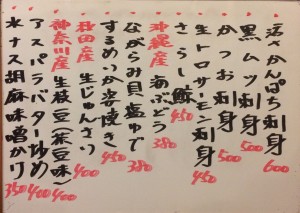 活かんぱち刺身 600
黒ムツ刺身 500
かつお刺身 500
生トロサーモン刺身 450
さらし鯨 450
沖縄産 海ぶどう 380
ながらみ貝塩ゆで 380
するめいか姿焼き 450
秋田産 生じゅんさい 400
神奈川産 生枝豆(茶豆味 400
アスパラバター炒め 400
水ナス胡麻味噌かけ 350